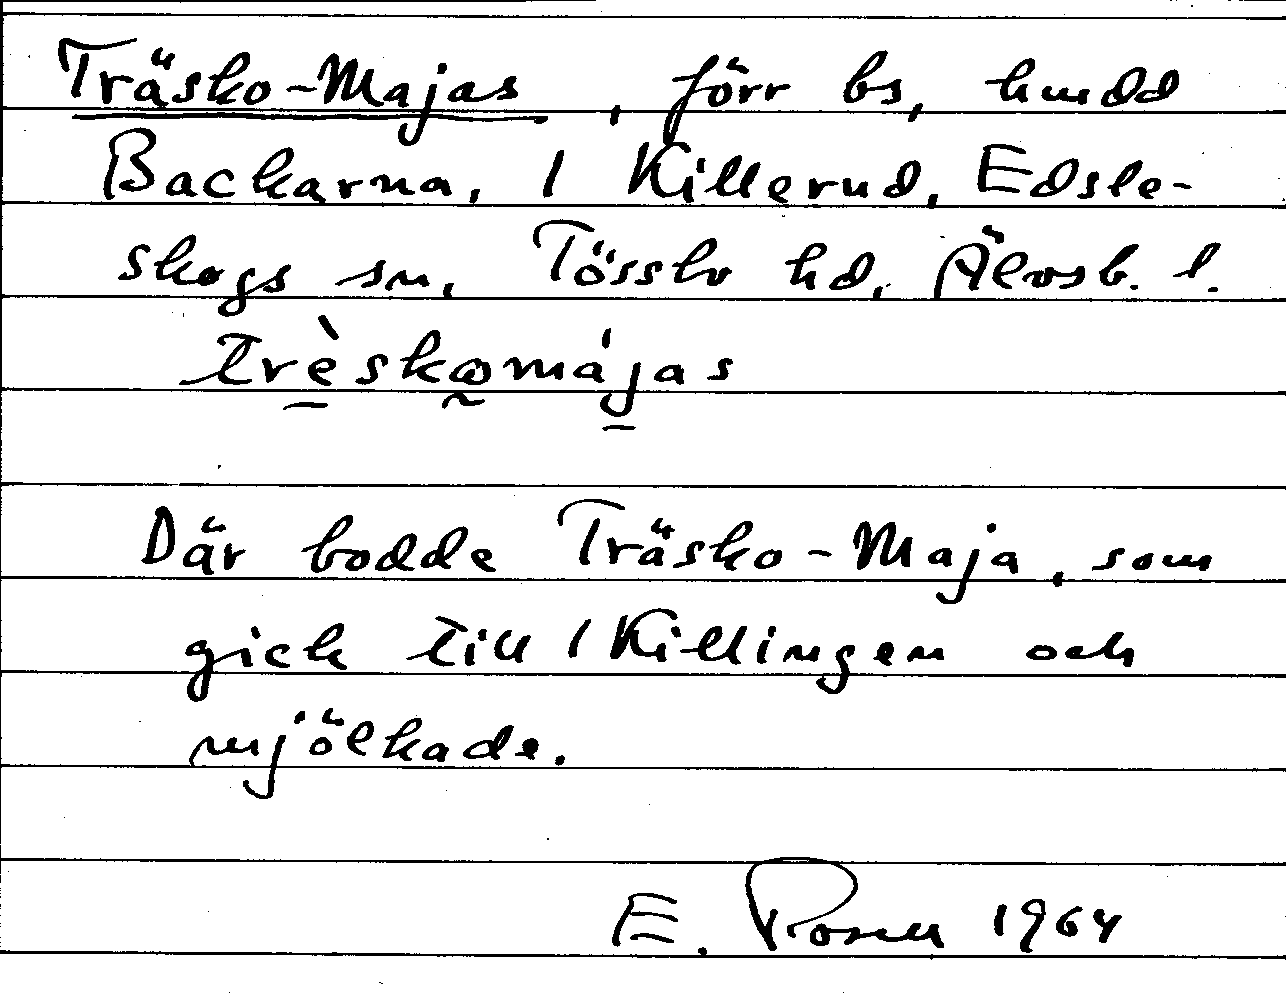 Träsko-Majas, förr bs, hmdd
Backarna, 1 Killerud, Edsle-
skogs sn, Tössbo hd, Älvsb. l.
trèskωmájas
Där bodde Träsko-Maja, som
gick till 1 Killingen och
mjölkade.
E. Rosell 1964